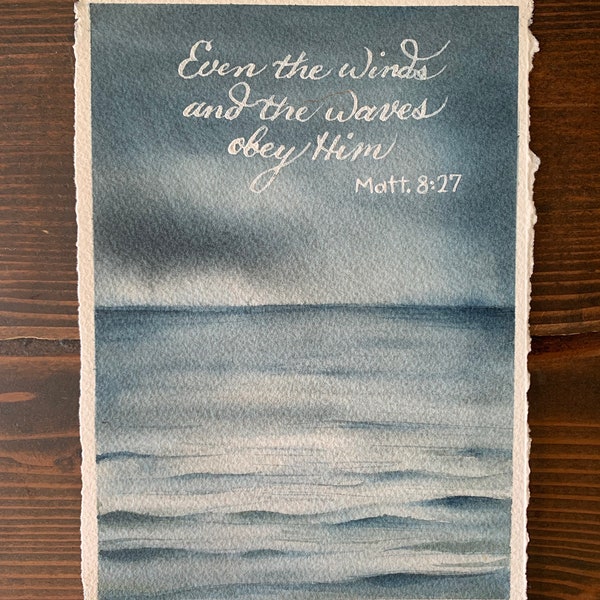 Even the winds
and the waves
obey Him
Matt. 8:27